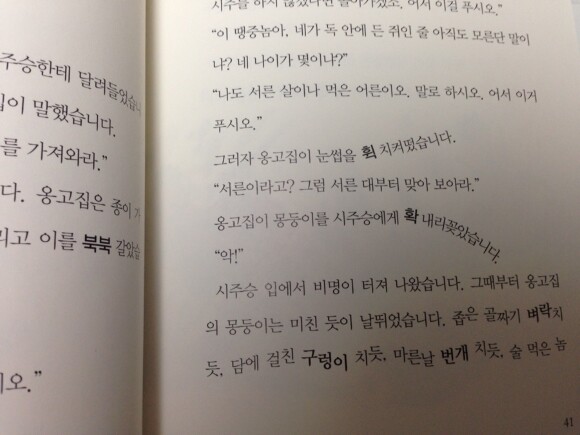 주승한테 달려들었습니
집이 말했습니다.
를 가져와라."
다. 옹고집은 종이 가
리고 이를 북북 갈았습
이오."
시주를 하지 않았다면 돌아가겠소. 어서 이걸 푸시오."
"이 땡중놈아, 네가 독 안에 든 쥐인 줄 아직도 모른단 말이
냐? 네 나이가 몇이냐?"
"나도 서른 살이나 먹은 어른이오. 말로 하시오. 어서 이거
푸시오."
그러자 옹고집이 눈썹을 휙 치켜떴습니다.
"서른이라고? 그럼 서른 대부터 맞아 보아라."
옹고집이 몽둥이를 시주승에게 확 내리꽂았습니다.
"악!"
시주승 입에서 비명이 터져 나왔습니다. 그때부터 옹고집
의 몽둥이는 미친 듯이 날뛰었습니다. 좁은 골짜기 벼락치
듯, 담에 걸친 구렁이 치듯, 마른날 번개 치듯, 술 먹은 놈
41